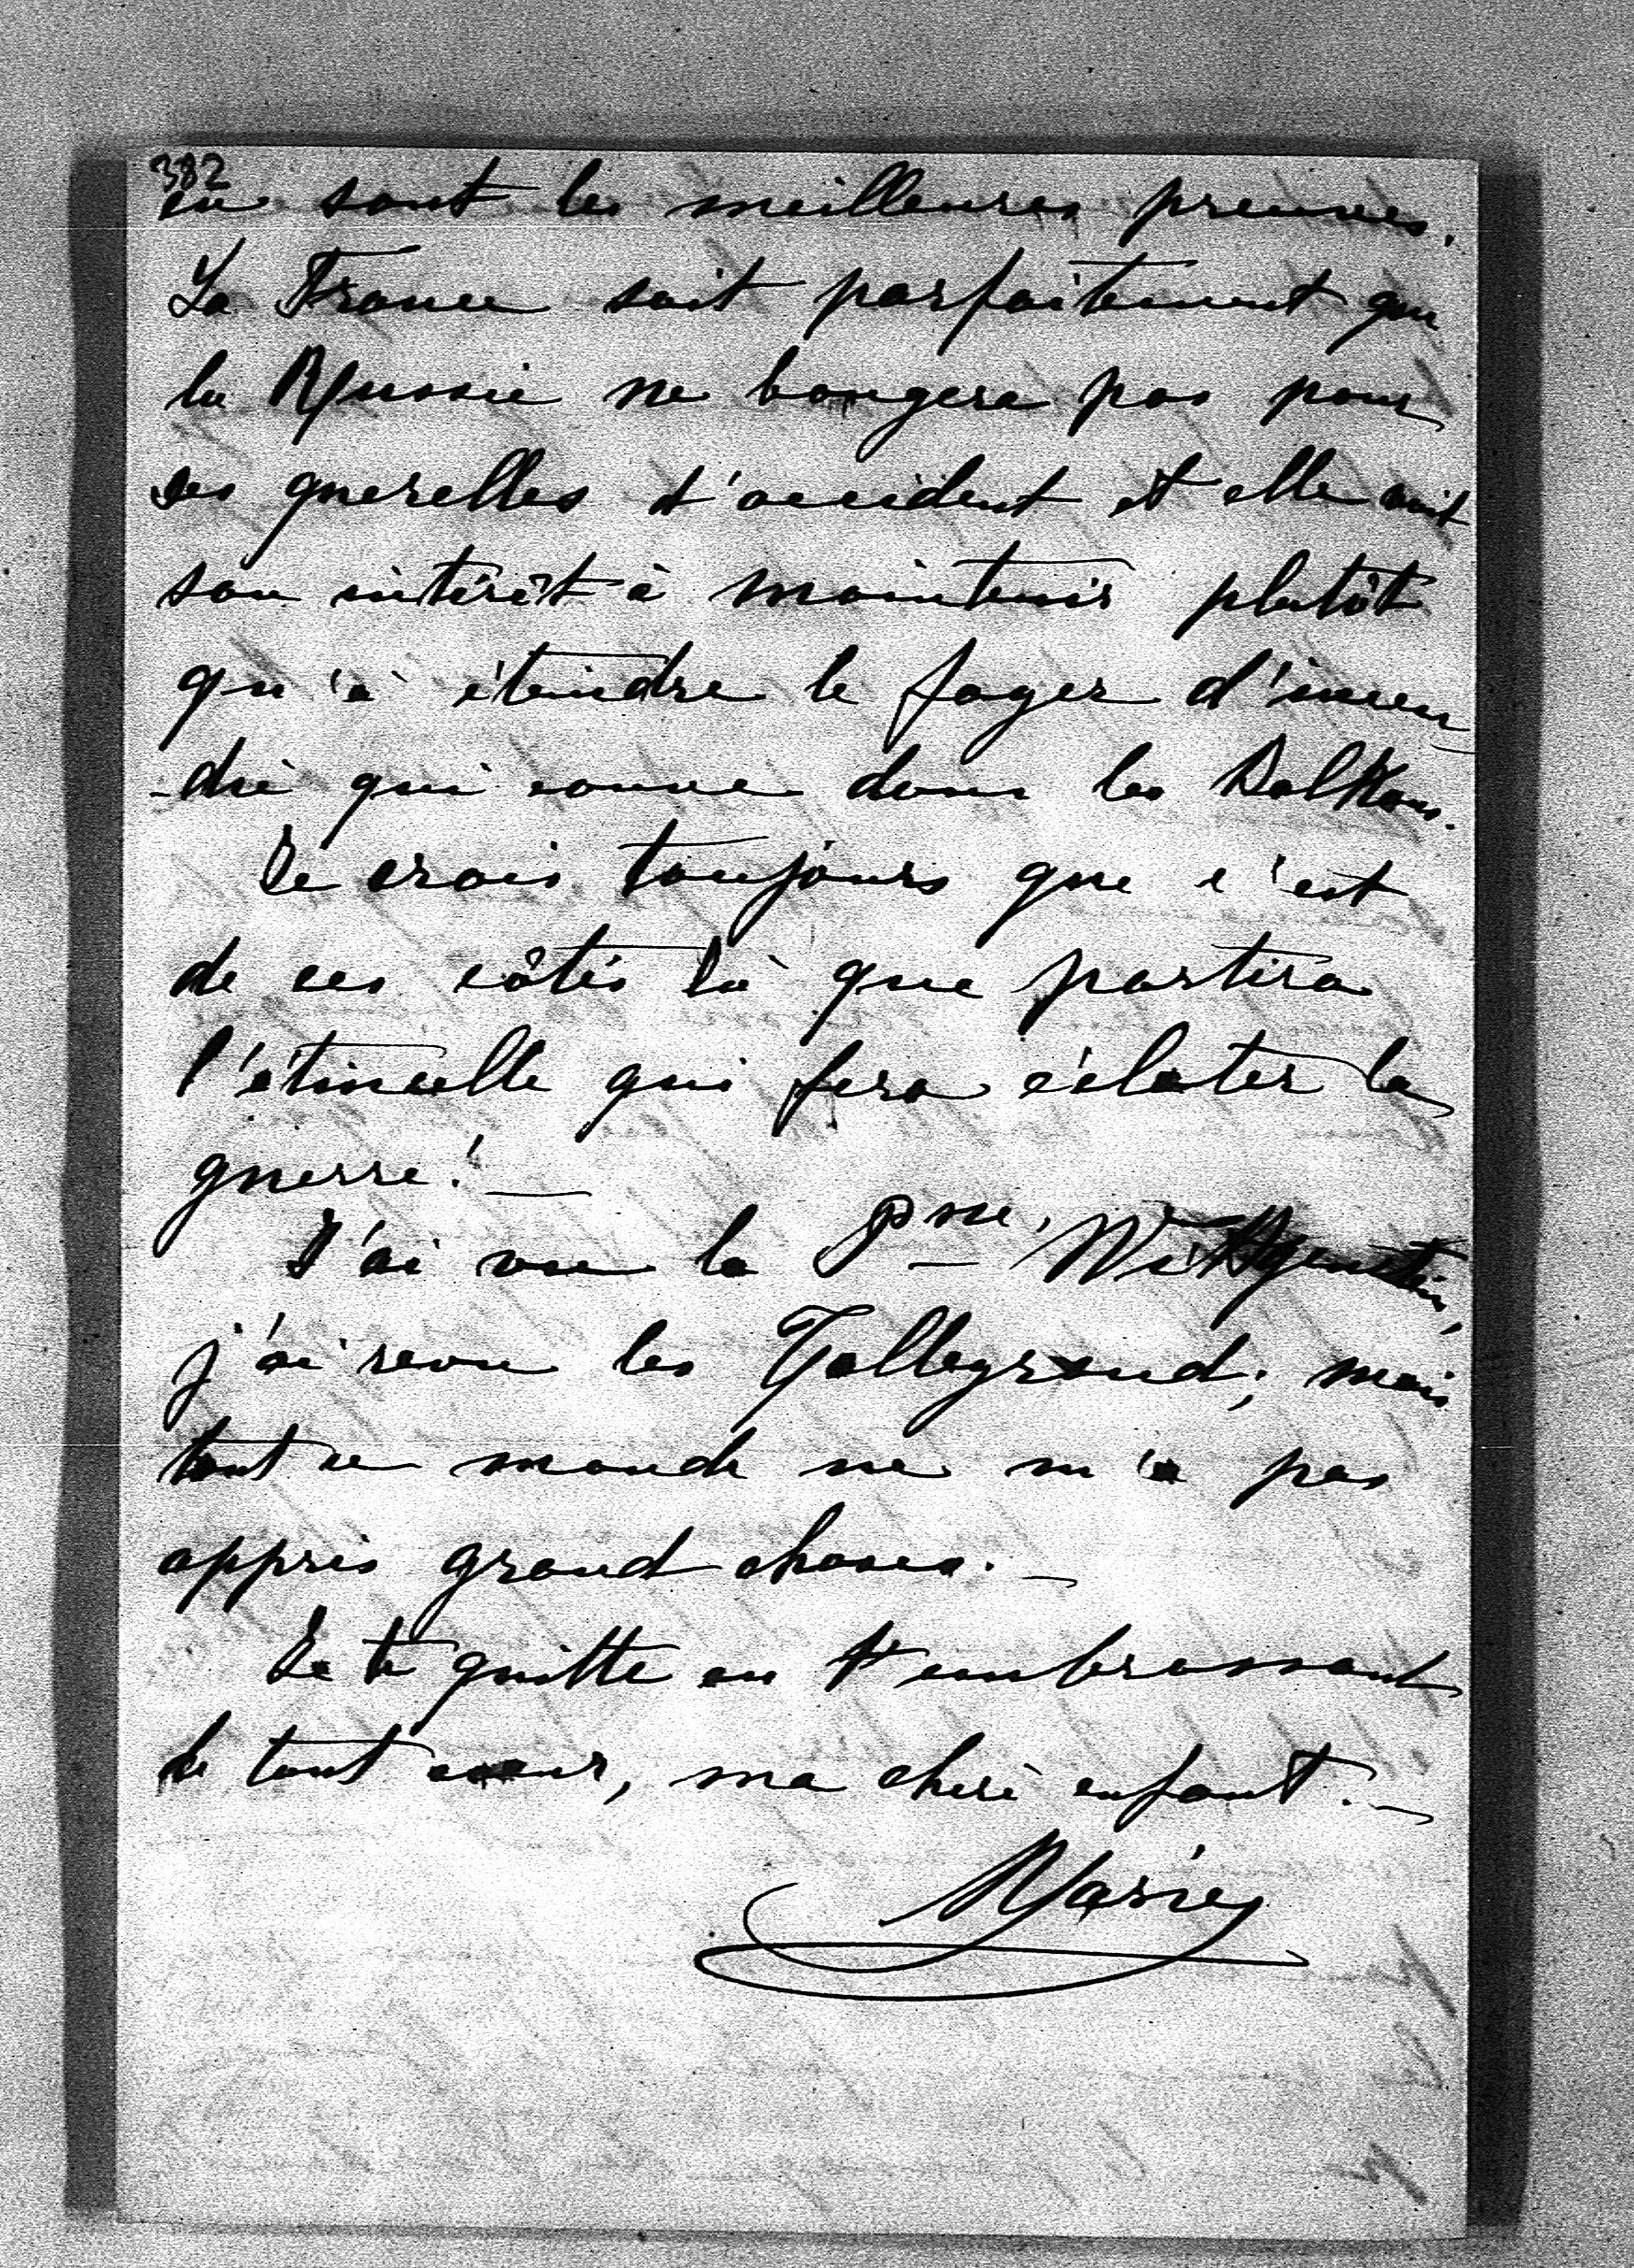 382
en sont les meilleures preuves.
La France sait parfaitement que
la Russie ne bougera pas pour
ses querelles d'occident et elle voit
son intérêt à maintenir plutôt
qu'à éteindre le foyer d'incen
-die qui couve dans les Balkans.
Je crois toujours que c'est
de ces côtés là que partira
l'étincelle qui fera éclater la
guerre! —
J'ai vu la Psse, Wittgenstein,
j'ai revu les Talleyrand; mais
tout ce monde ne m'a pas
appris grand choses. —
Je te quitte en t'embrassant
de tout cœur, ma chère enfant. —
Marie